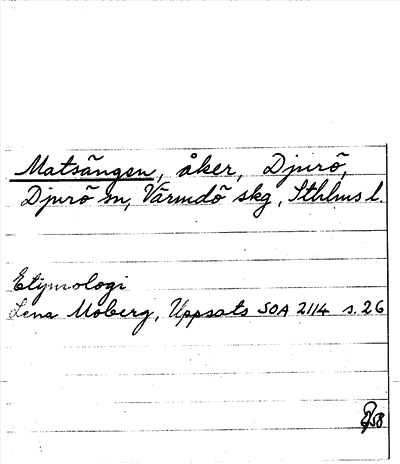 Matsängen, åker, Djurö,
Djurö sn, Värmdö skg, Sthlms l.
Etymologi
Lena Moberg, Uppsats SOA 2114 s. 26